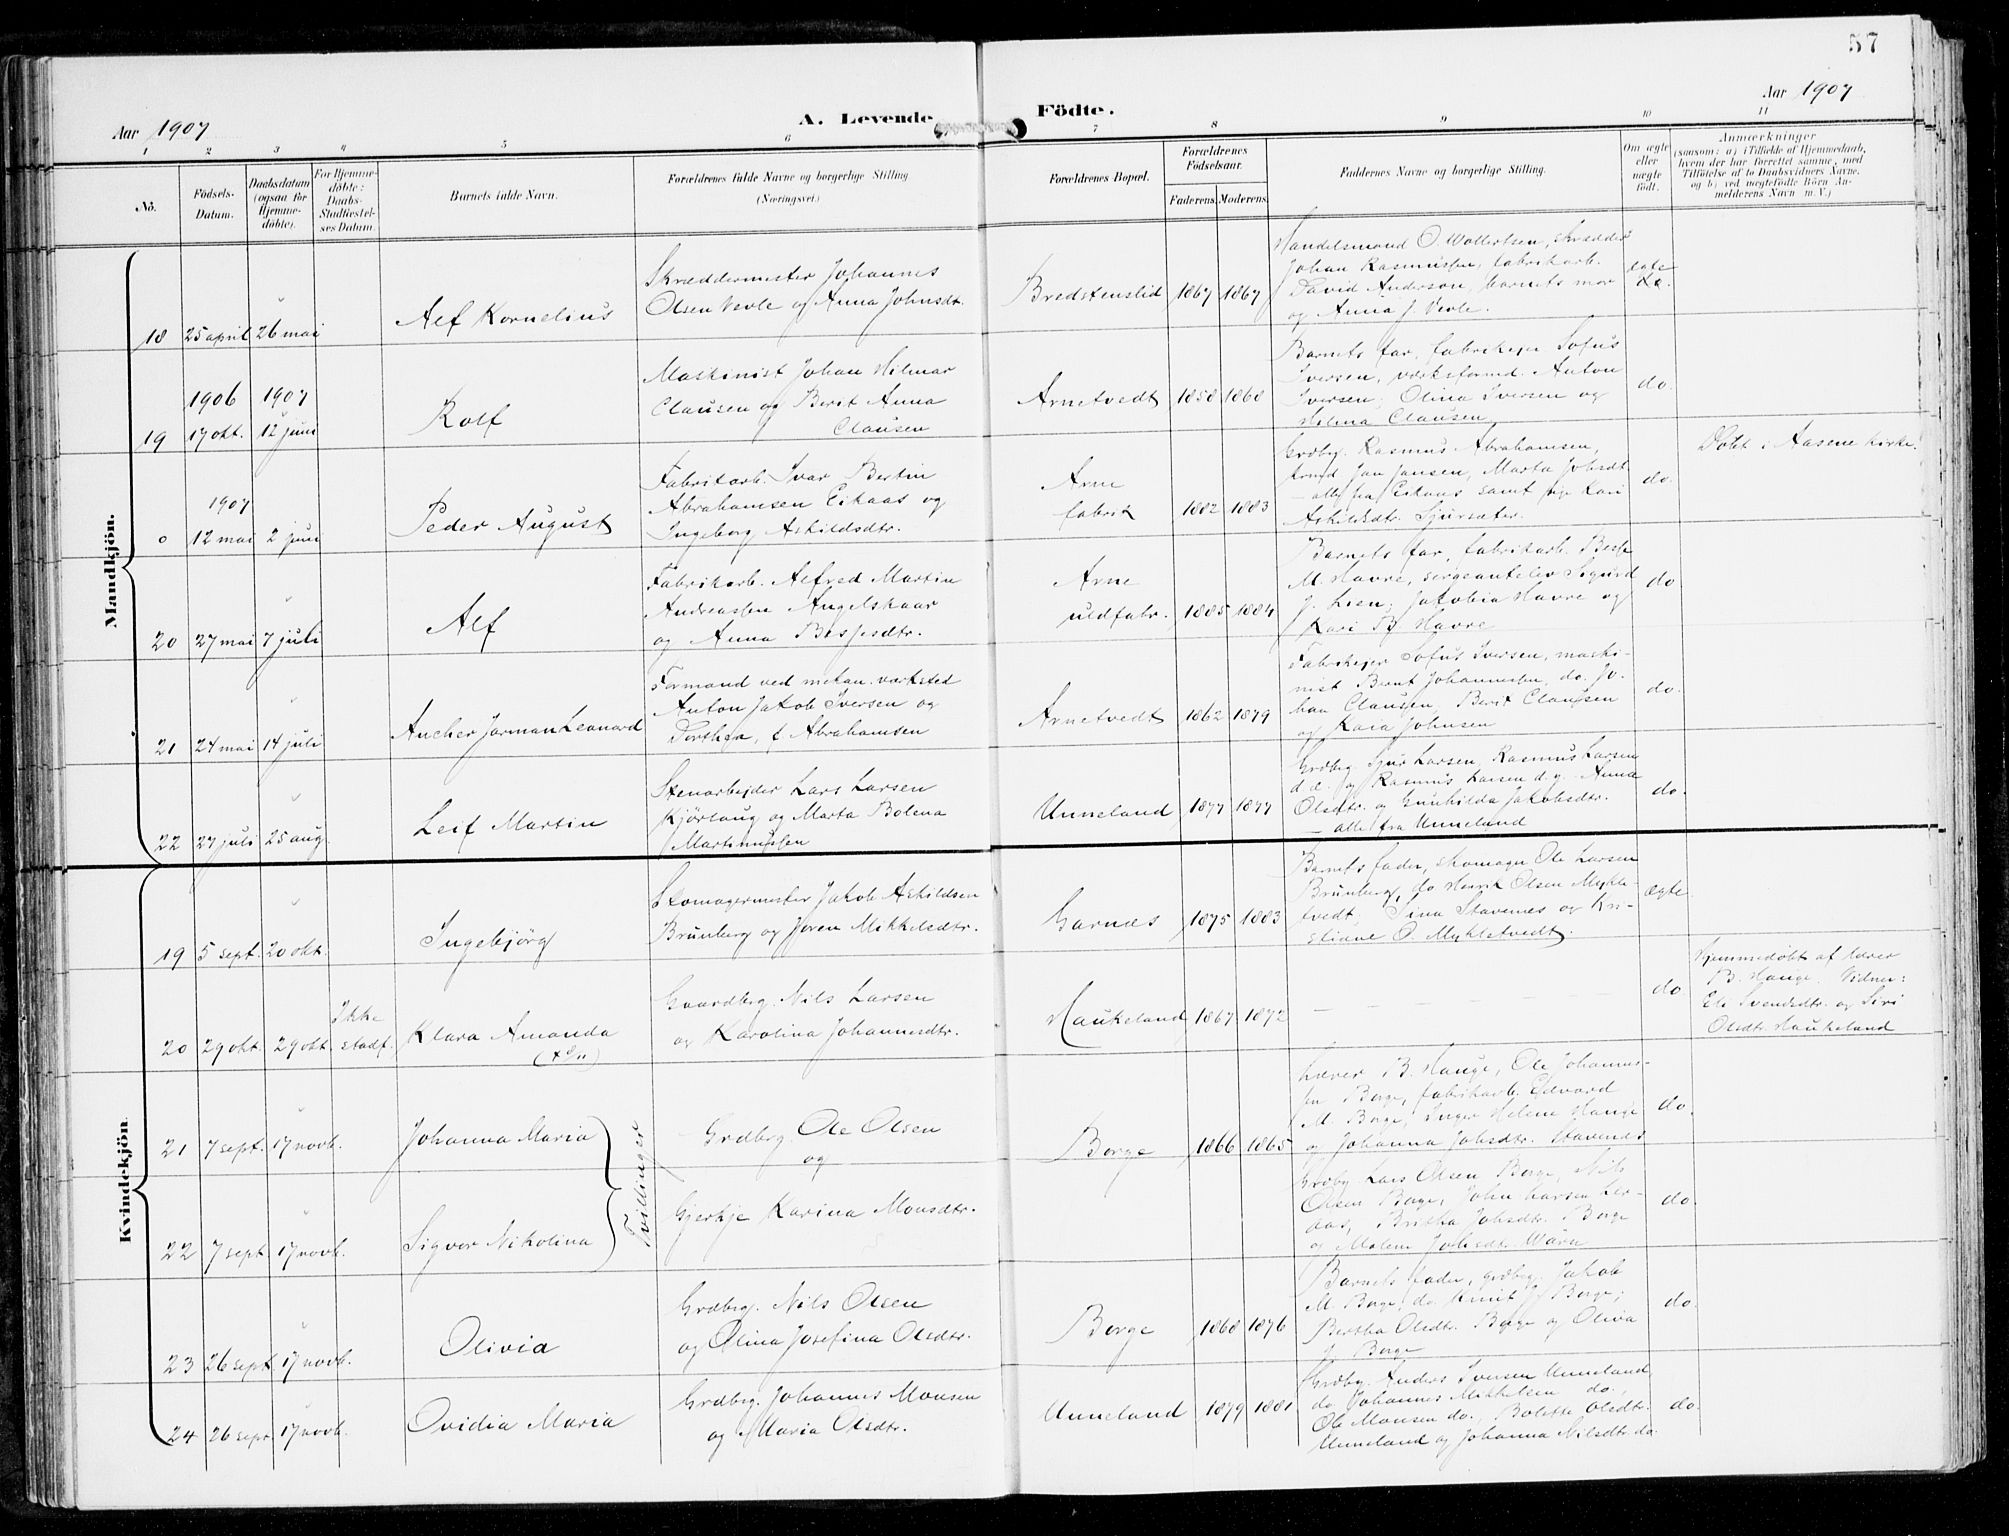 57
Aar 1907
A. Levende
Födte.
Aar 1907
1 2 3 4 5 6 7 8 9 10 11
No.
Födsels-
Datum.
Daabsdatum
(ogsaa for
Hjemme-
døbte).
For Hjemme-
døbte:
Daabs-
Stadfæstel-
ses Datum.
Barnets fulde Navn.
Forældrenes fulde Navne og borgerlige Stilling
(Næringsvei.)
Forældrenes Bopæl.
Forældrenes
Födselsaar.
Faderens. Moderens.
Faddernes Navne og borgerlige Stilling.
Om ægte
eller
uægte
født.
Anmærkninger
(saasom: a) i Tilfælde af Hjemmedaab,
hvem der har forrettet samme, med
Tilføielse af to Daabsvidners Navne,
og b) ved uægtefødte Börn An-
melderens Navn m. V.)
Mandkjön.
18 25 april 26 mai
Alf Kornelius
Skræddermester Johannes
Olsen Vevle og Anna Johnsdt.
Bredstenslid 1867 1867
Handelsmand O. Wollertsen, skrædder
Johan Rasmussen, fabrikarb.
David Anderson, barnets mor
og Anna J. Vevle.
ægte
1906 1907
19 17 okt. 12 juni
Rolf
Maskinist Johan Hilmar
Clausen og Berit Anna
Clausen
Arnetvedt 1858 1860
Barnets far, fabrikejer Sofus
Iversen, værksformd. Anton
Iversen; Olina Iversen og
Helma Clausen
do.
1907
0 12 mai 2 juni
Peder August
Fabrikarb. Ivar Bertin
Abrahamsen Eikaas og
Ingeborg Askildsdtr.
Arne
fabrik 1882 1883
Grdbg. Rasmus Abrahamsen,
Jan Jansen, Marta Johsdt.
– alle fra Eikaas samt pige Kari
Askildsdtr. Sjursæter.
do.
Døbt i Aasene kirke.
20 27 mai 7 juli
Alf
Fabrikarb. Alfred Martin
Andreassen Angelskaar
og Anna Bessesdtr.
Arne
uldfabr. 1885 1884
Barnets far, fabrikarb. Besse
M. Havre, sergeantelev Sigurd
J. Lien; Jakobia Havre og
Kari B. Havre
do
21 24 mai 14 juli
Ancher Jarman Leonard
Formand ved mekan. værksted
Anton Jakob Iversen og
Dorthea, f. Abrahamsen
Arnetvedt 1862 1879
Fabrikejer Sofus Iversen, maski-
nist Bernt Johannessen, do. Jo-
han Clausen, Berit Clausen
og Kaia Johnsen
do.
22 27 juli 25 aug.
Leif Martin
Stenarbejder Lars Larsen
Kjørlaug og Marta Bolena
Martinussen
Unneland 1877 1877
Grdbg. Sjur Larsen, Rasmus Larsen
d.e. og Rasmus Larsen d.y. Anna
Olsdtr. og Gunhilda Jakobsdtr.
– alle fra Unneland
do.
Kvindekjön.
19 5 sept. 20 okt.
Ingebjörg
Skomagermester Jakob Askildsen
Brunberg og Jøren Mikkelsdtr.
Garnæs 1875 1883
Barnets fader, skomager Ole Larsen
Brunberg, do Henrik Olsen Mykle-
tvedt; Sina Stavenes og Kri-
stiane O. Mykletvedt.
ægte
20 29 okt. 29 okt.
Ikke
stadf.
Klara Amanda
Gaardbrg. Nils Larsen
og Karolina Johannesdtr.
Haukeland 1867 1872
– – – – –
do
Hjemmedøbt af lærer
B. Hauge. Vidner:
Eli Svendsdtr. og Siri
Olsdtr. Haukeland
21 7 sept. 17 novb.
Johanna Maria
Tvillinger
Grdbrg. Ole Olsen
og
Borge 1866 1865
Lærer B. Hauge, Ole Johannes-
sen Borge, fabrikarb. Edvard
M. Borge; Inger Helene Hauge
og Johanna Johsdtr. Stavenes
do.
22 7 sept. 17 novb.
Sigvor Nikolina
Gjertje Karina Monsdtr.
Grdbg. Lars Olsen Borge, Nils
Olsen Borge, John Larsen Ler-
daa, Britha Johsdtr. Borge
og Malene Johsdtr.
do.
23 26 sept. 17 novb.
Olivia
Grdbrg. Nils Olsen
og Olina Josefina Olsdtr.
Borge 1868 1876
Barnets fader, grdbrg. Jakob
M. Borge, do. Knut J. Borge;
Bertha Olsdtr. Borge og Oliva
J. Borge
do.
24 26 sept. 17 novb.
Ovidia Maria
Grdbrg. Johannes Monsen
og Maria Olsdtr.
Unneland 1879 1881
Grdbg. Anders Iversen Unneland,
do Johannes Mikkelsen do.,
Ole Monsen do., Bolette Olsdtr.
Unneland og Johanna Nilsdtr. do.
do.